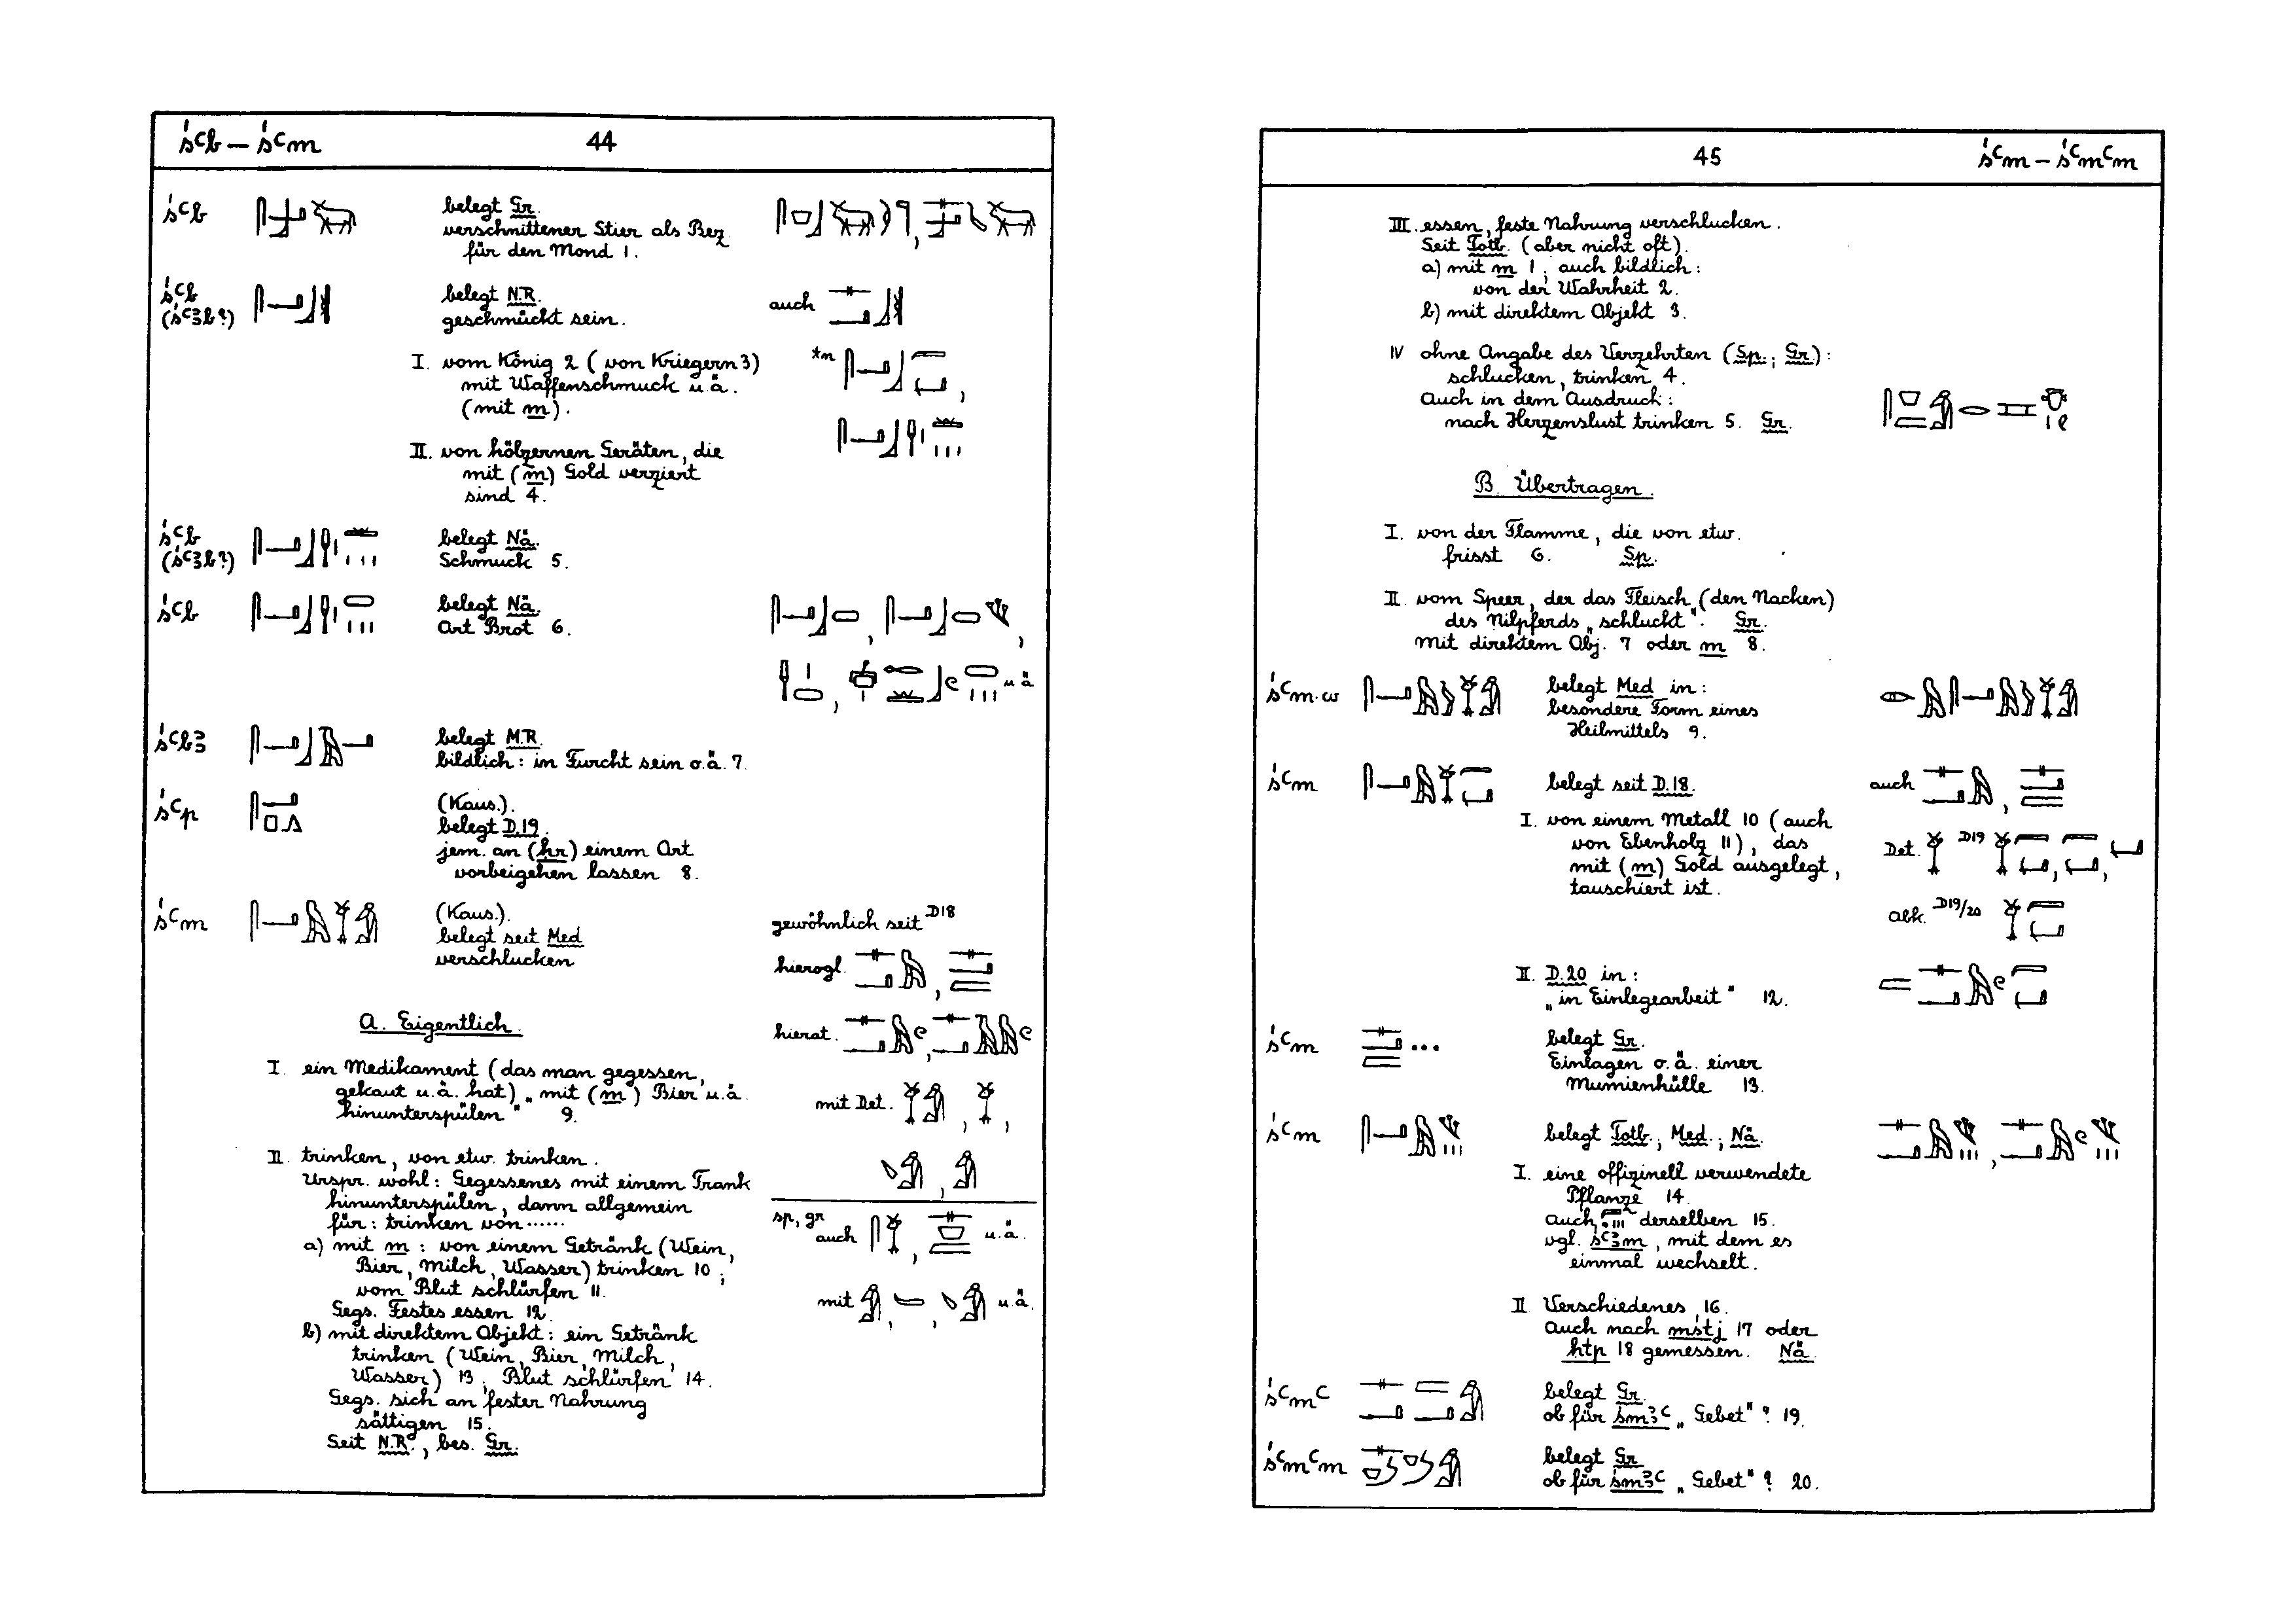 ś꜂b – ś꜂m 44
śꜥb belegt Gr.
verschnittener Stier als Bez
für den Mond 1.
śꜥb belegt N.R. auch
(śꜥꜣb?) geschmückt sein.
I. vom König 2 (von Kriegern 3)
mit Waffenschmuck u.ä.
(mit m).
II. von hölzernen Geräten, die
mit (m) Gold verziert
sind 4.
śꜥb belegt Nä.
(śꜥꜣb?) Schmuck 5.
śꜥb belegt Nä.
Art Brot 6.
u.ä
śꜥbꜣ belegt M.R.
bildlich: in Furcht sein o.ä. 7.
śꜥp (Kaus.).
belegt D.19.
jem. an (ḥr) einem Ort
vorbeigehen lassen 8.
śꜥm (Kaus.).
belegt seit Med
verschlucken
gewöhnlich seit D18
hierogl.
A. Eigentlich.
hierat.
I. ein Medikament (das man gegessen,
gekaut u.ä. hat) „mit (m) Bier u.ä.
hinunterspülen" 9.
mit Det.
II. trinken, von etw. trinken.
Urspr. wohl: Gegessenes mit einem Trank
hinunterspülen, dann allgemein
für: trinken von ......
a) mit m: von einem Getränk (Wein,
Bier, Milch, Wasser) trinken 10;
vom Blut schlürfen 11.
Gegs. Festes essen 12.
b) mit direktem Objekt: ein Getränk
trinken (Wein, Bier, Milch,
Wasser) 13; Blut schlürfen 14.
Gegs. sich an fester Nahrung
sättigen 15.
Seit N.R., bes. Gr.
sp, gr
auch u.ä.
mit u.ä.
45 śꜥm – śꜥmꜥm
III. essen, feste Nahrung verschlucken.
Seit Totb. (aber nicht oft).
a) mit m 1; auch bildlich:
von der Wahrheit 2.
b) mit direktem Objekt 3.
IV ohne Angabe des Verzehrten (Sp.; Gr.):
schlucken, trinken 4.
Auch in dem Ausdruck:
nach Herzenslust trinken 5. Gr.
B. Übertragen.
I. von der Flamme, die von etw.
frisst 6. Sp.
II. vom Speer, der das Fleisch (den Nacken)
des Nilpferds „schluckt". Gr.
Mit direktem Obj. 7 oder m 8.
śꜥm·w belegt Med in:
besondere Form eines
Heilmittels 9.
śꜥm belegt seit D.18. auch
I. von einem Metall 10 (auch
von Ebenholz 11), das
mit (m) Gold ausgelegt,
tauschiert ist.
Det. D19
Abk. D19/20
II. D.20 in:
„in Einlegearbeit" 12.
śꜥm ... belegt Gr.
Einlagen o.ä. einer
Mumienhülle 13.
śꜥm belegt Totb.; Med.; Nä.
I. eine offizinell verwendete
Pflanze 14.
auch derselben 15.
vgl. śꜥꜣm, mit dem es
einmal wechselt.
II Verschiedenes 16.
Auch nach mśtj 17 oder
ḥtp 18 gemessen. Nä.
śꜥmꜥ belegt Gr.
ob für śmꜣꜥ „Gebet"? 19.
śꜥmꜥm belegt Gr
ob für śmꜣꜥ „Gebet"? 20.